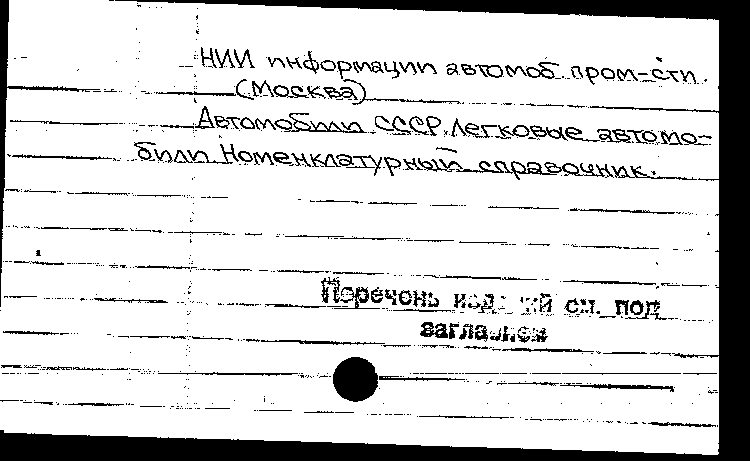 НИИ информации автомоб. пром-сти.
(Москва)
Автомобили СССР. Легковые автомо-
били. Номенклатурный справочник.
Перечень изданий см. под
заглавием